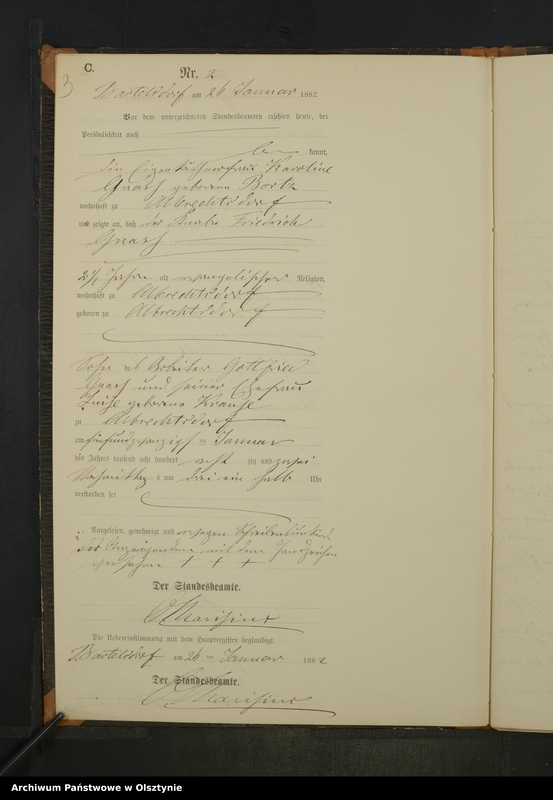 C.
3
Nr. 2
Bartelsdorf am 26 Januar 1882.
Vor dem unterzeichneten Standesbeamten erschien heute, der
Persönlichkeit nach
be kannt,
die Eigenkäthnerfrau Karoline
Gnasch geborene Bortz
wohnhaft zu Albrechtsdorf
und zeigte an, daß der Knabe Friedrich
Gnasch
2 1/2 Jahre alt evangelischer Religion,
wohnhaft zu Albrechtsdorf
geboren zu Albrechtsdorf
Sohn des Arbeiter Gottfried
Gnasch und seiner Ehefrau
Luise geborene Krause
zu Albrechtsdorf
am fünfundzwanzigsten Januar
des Jahres tausend acht hundert acht zig und zwei
Nachmittags um drei ein halb Uhr
verstorben sei
Vorgelesen, genehmigt und wegen Schreibensunkunde
der Anzeigenden mit dem Handzeichen
versehen + + +
Der Standesbeamte.
Die Uebereinstimmung mit dem Hauptregister beglaubigt.
Bartelsdorf am 26 ten Januar 1882
Der Standesbeamte.
Archiwum Państwowe w Olsztynie